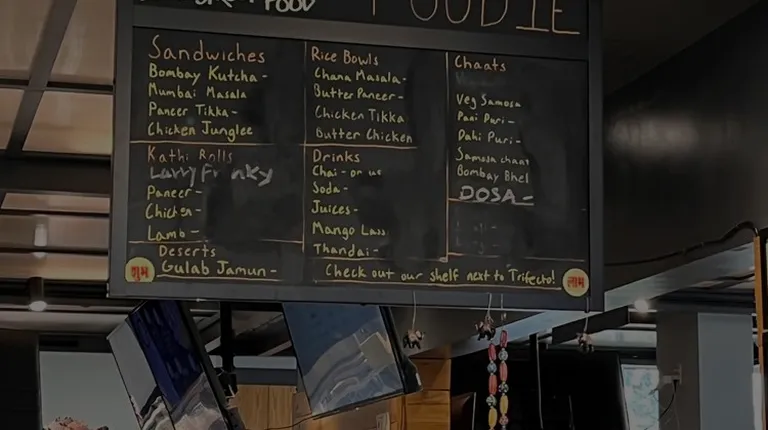 FOOD
FOODIE
Sandwiches
Bombay Kutcha -
Mumbai Masala
Paneer Tikka -
Chicken Junglee
Kathi Rolls
Paneer -
Chicken -
Lamb -
Deserts
Gulab Jamun -
Rice Bowls
Chana Masala -
Butter Paneer -
Chicken Tikka
Butter Chicken
Drinks
Chai - on us
Soda -
Juices -
Mango Lass
Thandai -
Chaats
Veg Samosa
Pani Puri -
Dahi Puri -
Samosa chaat
Bombay Bhel
DOSA -
शुभ
Check out our shelf next to Trifecta!
लाभ